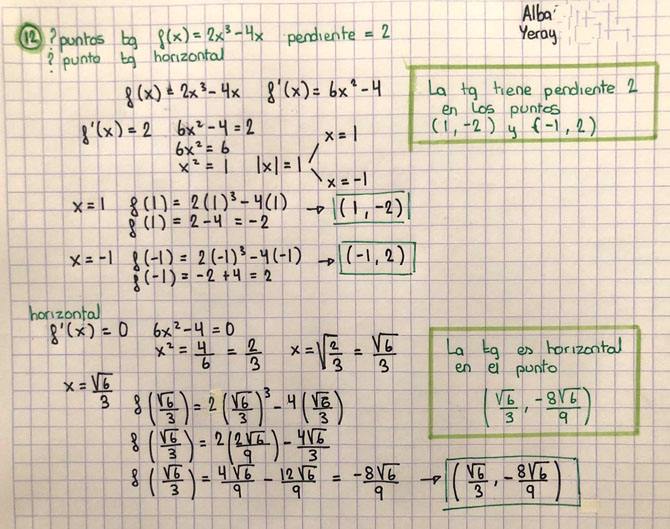 Alba
Yeray
12 ? puntos tg f(x) = 2x³ - 4x pendiente = 2
? punto tg horizontal
f(x) = 2x³ - 4x f'(x) = 6x² - 4
La tg tiene pendiente 2
en los puntos
(1, -2) y (-1, 2)
f'(x) = 2 6x² - 4 = 2
6x² = 6
x² = 1 |x| = 1
x = 1
x = -1
x = 1 f(1) = 2(1)³ - 4(1)
f(1) = 2 - 4 = -2
→ (1, -2)
x = -1 f(-1) = 2(-1)³ - 4(-1)
f(-1) = -2 + 4 = 2
→ (-1, 2)
horizontal
f'(x) = 0 6x² - 4 = 0
x² = 4/6 = 2/3 x = √(2/3) = √6/3
La tg es horizontal
en el punto
(√6/3, -8√6/9)
x = √6/3
f(√6/3) = 2(√6/3)³ - 4(√6/3)
f(√6/3) = 2(2√6/9) - 4√6/3
f(√6/3) = 4√6/9 - 12√6/9 = -8√6/9 → (√6/3, -8√6/9)